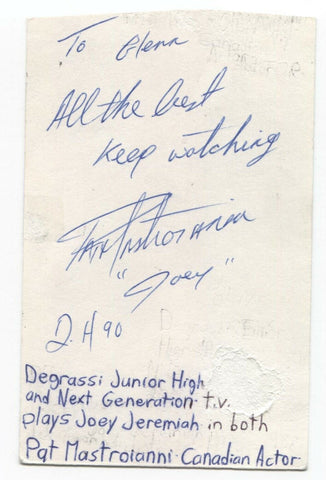 To Glenn
All the best
Keep watching
Pat Mastroianni
"Joey"
D.H 90
Degrassi Junior High
and Next Generation t.v.
plays Joey Jeremiah in both
Pat Mastroianni - Canadian Actor